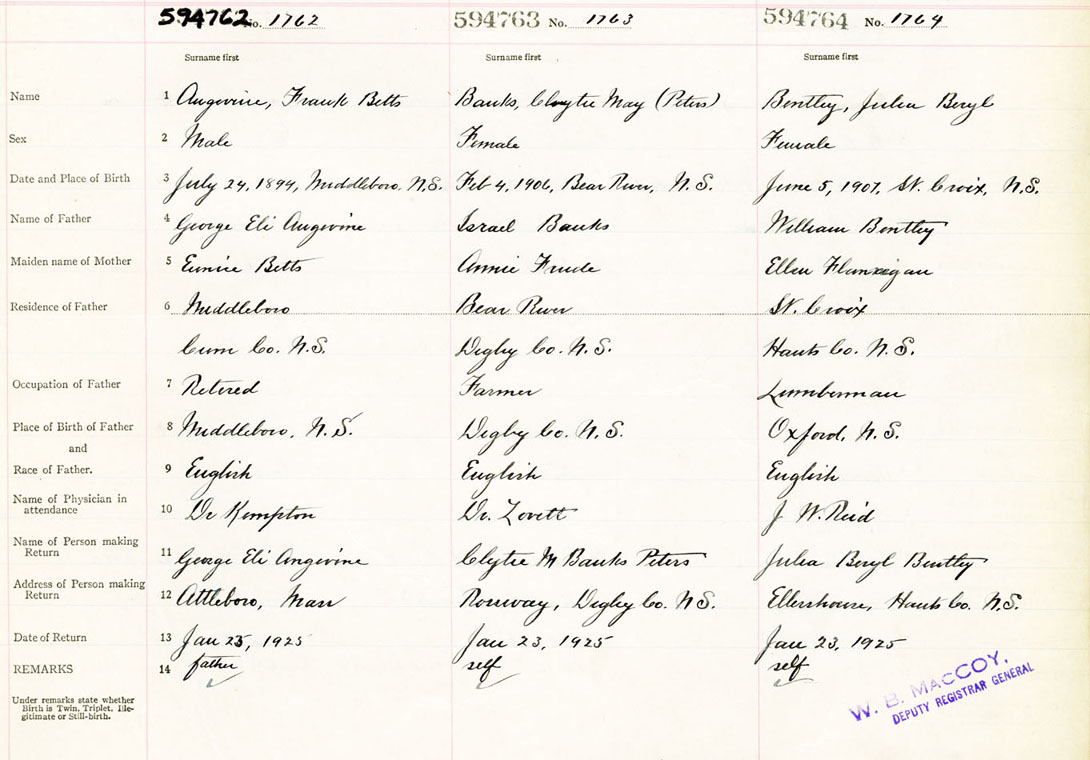 594762 No. 1762 594763 No. 1763 594764 No. 1764
Surname first Surname first Surname first
Name 1 Angevine, Frank Betts Banks, Clytie May (Peters) Bentley, Julia Beryl
Sex 2 Male Female Female
Date and Place of Birth 3 July 24, 1894, Middleboro, N.S. Feb 4, 1906, Bear River, N.S. June 5, 1907, St. Croix, N.S.
Name of Father 4 George Eli Angevine Israel Banks William Bentley
Maiden name of Mother 5 Eunice Betts Annie Frude Ellen Flannigan
Residence of Father 6 Middleboro Bear River St. Croix
Cum Co. N.S. Digby Co. N.S. Hants Co. N.S.
Occupation of Father 7 Retired Farmer Lumberman
Place of Birth of Father 8 Middleboro, N.S. Digby Co. N.S. Oxford, N.S.
and
Race of Father. 9 English English English
Name of Physician in
attendance 10 Dr Kempton Dr. Lovett J W. Reid
Name of Person making
Return 11 George Eli Angevine Clytie M Banks Peters Julia Beryl Bentley
Address of Person making
Return 12 Attleboro, Mass Digby Co. N.S. Ellershouse, Hants Co. N.S.
Date of Return 13 Jan 25, 1925 Jan 23, 1925 Jan 23, 1925
REMARKS 14 father self self
Under remarks state whether
Birth is Twin, Triplet, Ille-
gitimate or Still-birth.
W. B. MACCOY,
DEPUTY REGISTRAR GENERAL